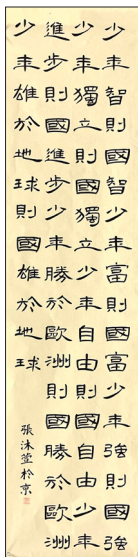 少年智則國智少年富則國富少年強則國強
少年獨立則國獨立少年自由則國自由少年
進步則國進步少年勝於歐洲則國勝於歐洲
少年雄於地球則國雄於地球
張沐萱於京